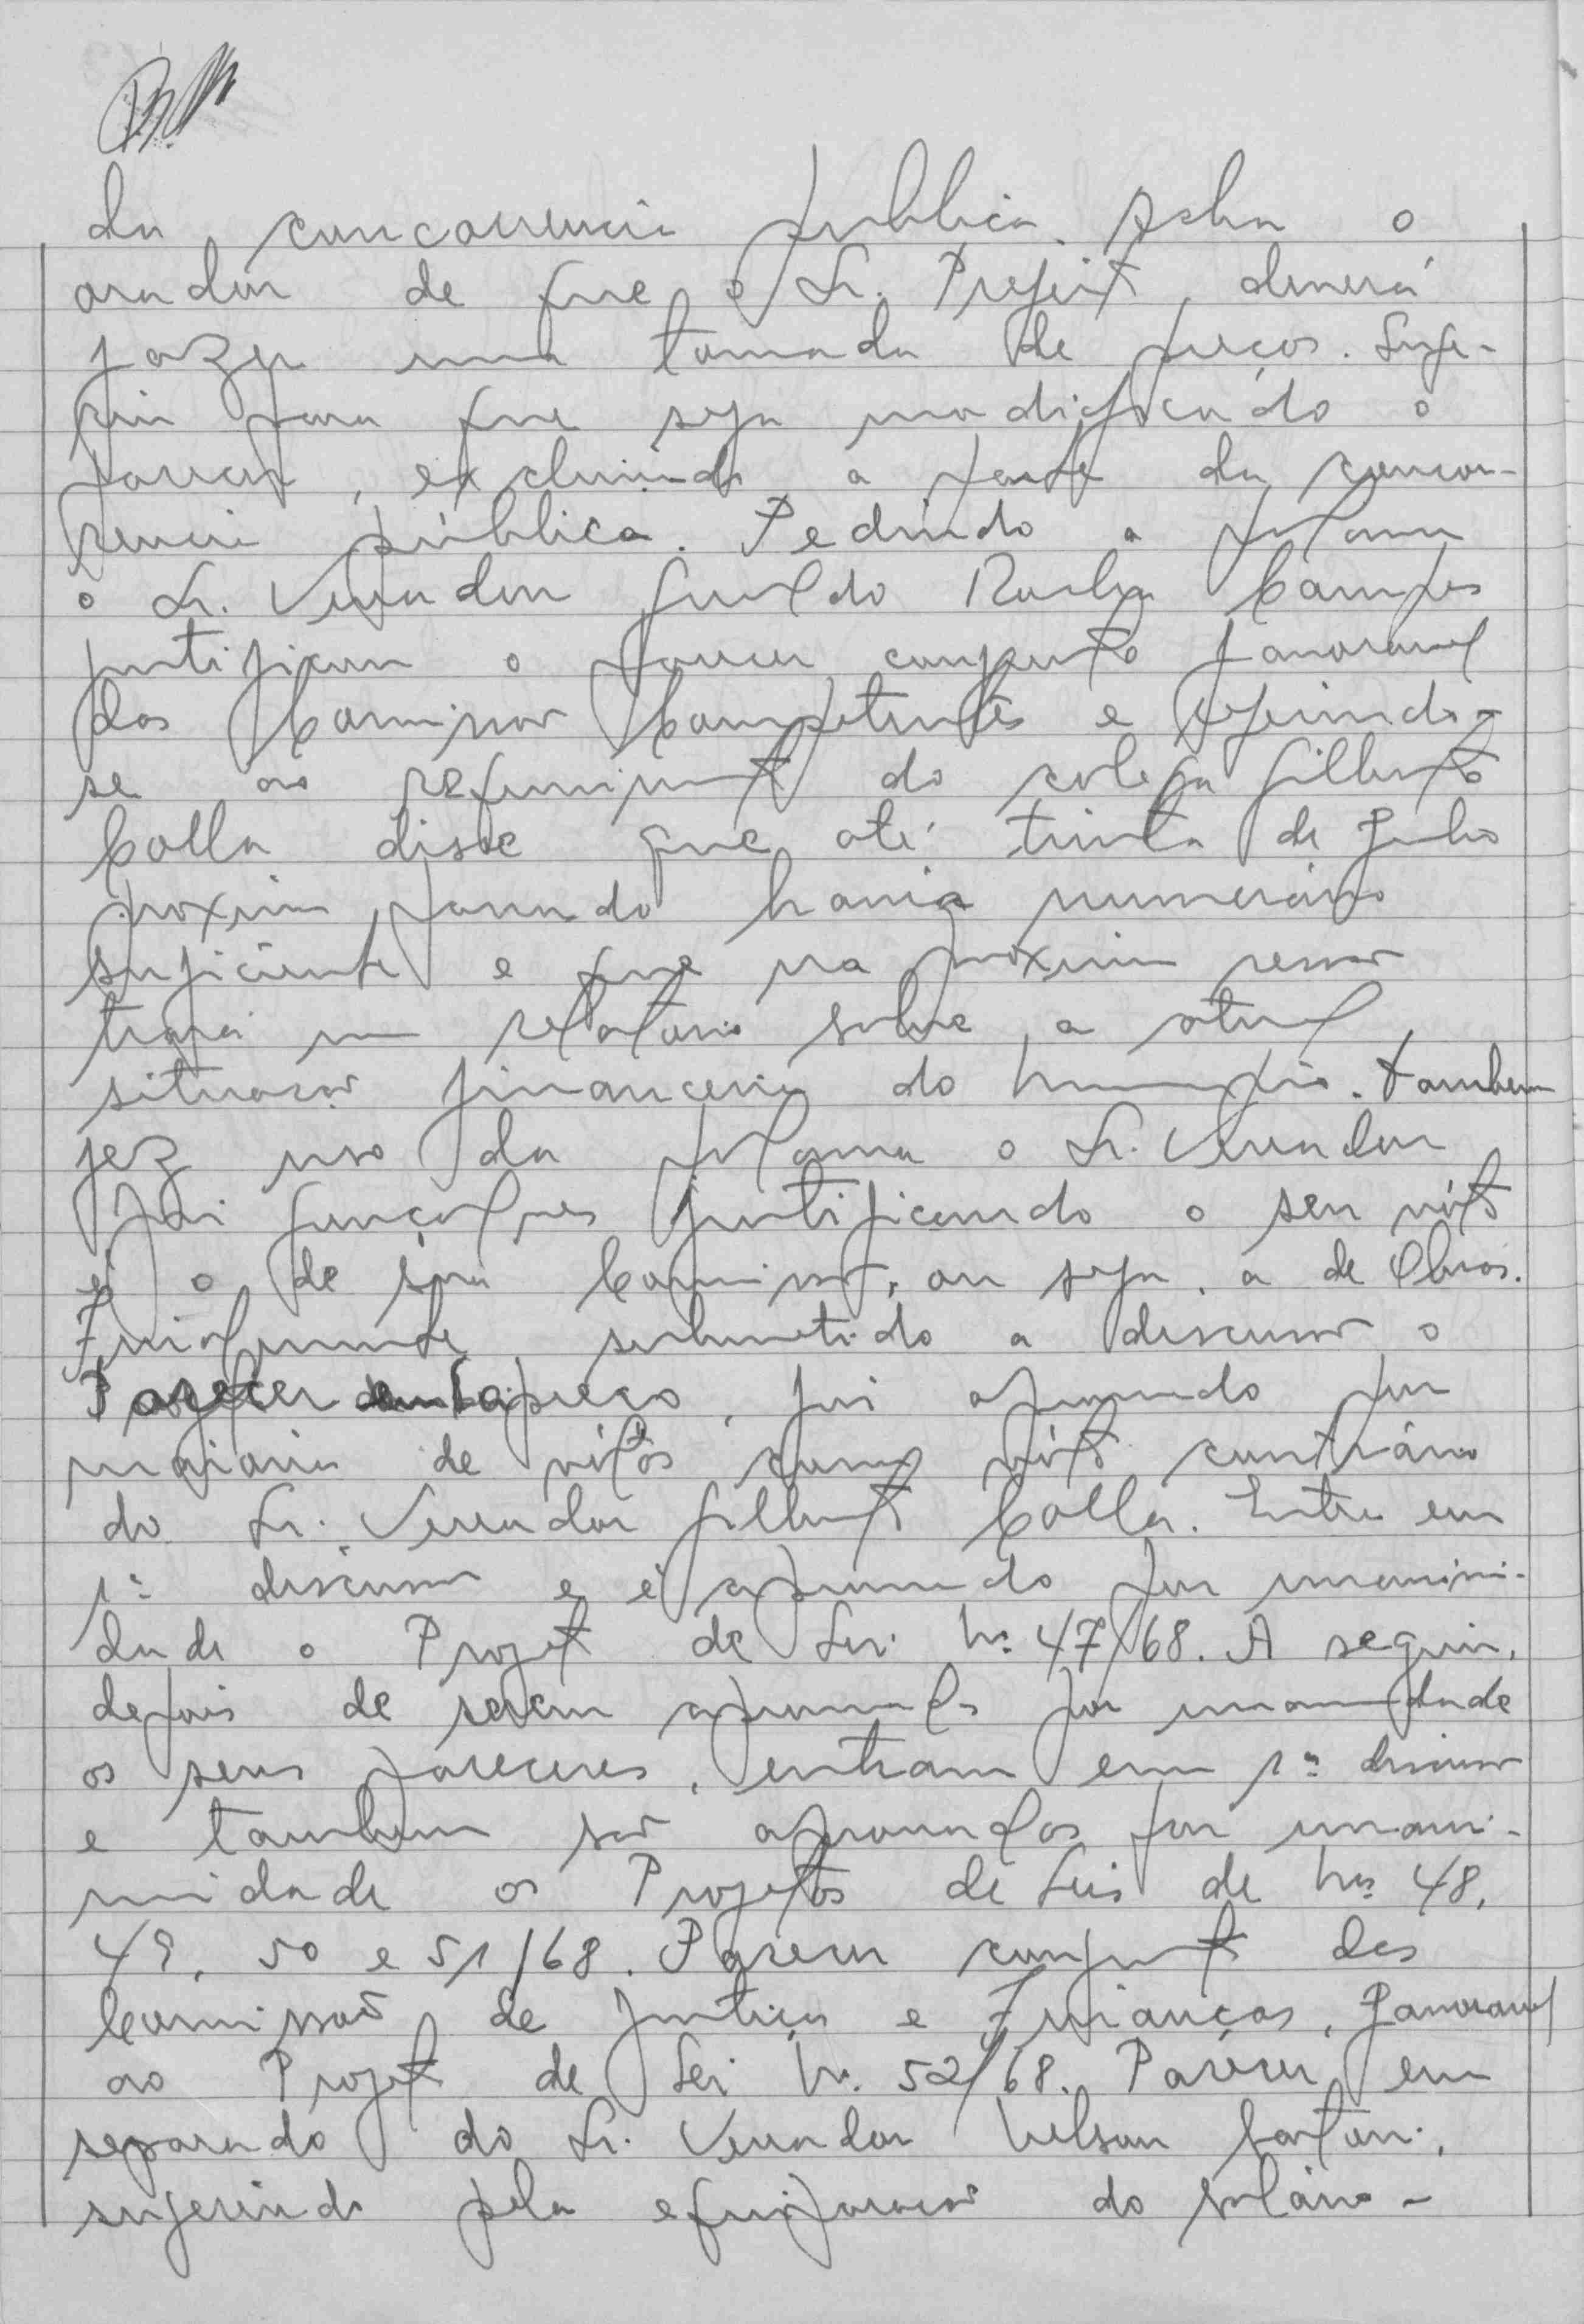 da concorrencia publica. Acha o
orador de que o Sr. Prefeito, deverá
fazer uma tomada de preços. Suge-
riu para que seja modificado o
parecer, excluindo a parte da concor-
rencia pública. Pedindo a palavra
o Sr. Vereador Geraldo Rocha Campos
justificou o parecer conjunto favoravel
das Comissões Competentes e referindo-
se ao requerimento do colega Gilberto
Colla disse que até trinta de Julho
proximo passado havia numerário
suficiente e que na proxima sessão
trará um relatorio sobre a atual
situação financeira do Municipio. Tambem
fez uso da palavra o Sr. Vereador
Gonçalves justificando o seu vóto
e o de sua Comissão, ou seja, a de Obras.
Finalmente, submetido a discussão o
Parecer em apreço, foi aprovado por
maioria de vótos, com o vóto contrário
do Sr. Vereador Gilberto Colla. Entra em
1ª discussão e é aprovado por unanimi-
dade o Projeto de Lei Nº 47/68. A seguir,
depois de serem aprovados por unanimidade
os seus pareceres, entram em 1ª discussão
e tambem são aprovados por unani-
midade os Projetos de Leis de Nos 48,
49, 50 e 51/68. Parecer conjunto das
Comissão de Justiça e Finanças, favoravel
ao Projeto de Lei Nº 52/68. Parecer em
separado do Sr. Vereador Nelson
sugerindo pela equiparação do salário-